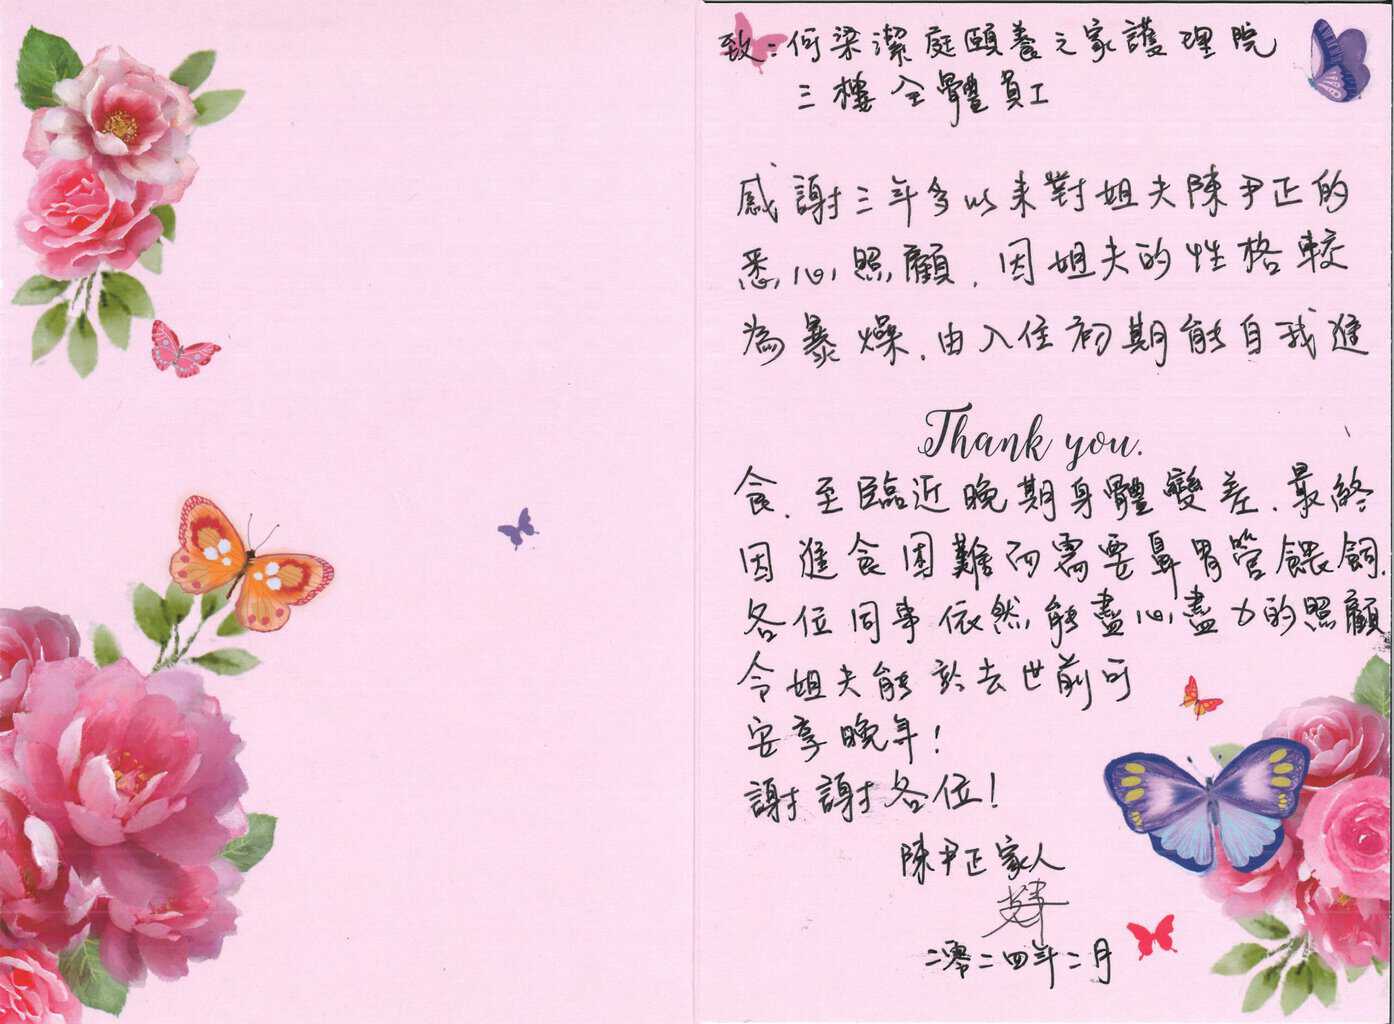 致：何梁潔庭頤養之家護理院
三樓全體員工
感謝三年多以來對姐夫陳尹正的
悉心照顧，因姐夫的性格較
為暴燥，由入住初期能自我進
Thank you.
食，至臨近晚期身體變差，最終
因進食困難而需要鼻胃管餵飼，
各位同事依然能盡心盡力的照顧
令姐夫能於去世前可
安享晚年！
謝謝各位！
陳尹正家人
二零二四年二月